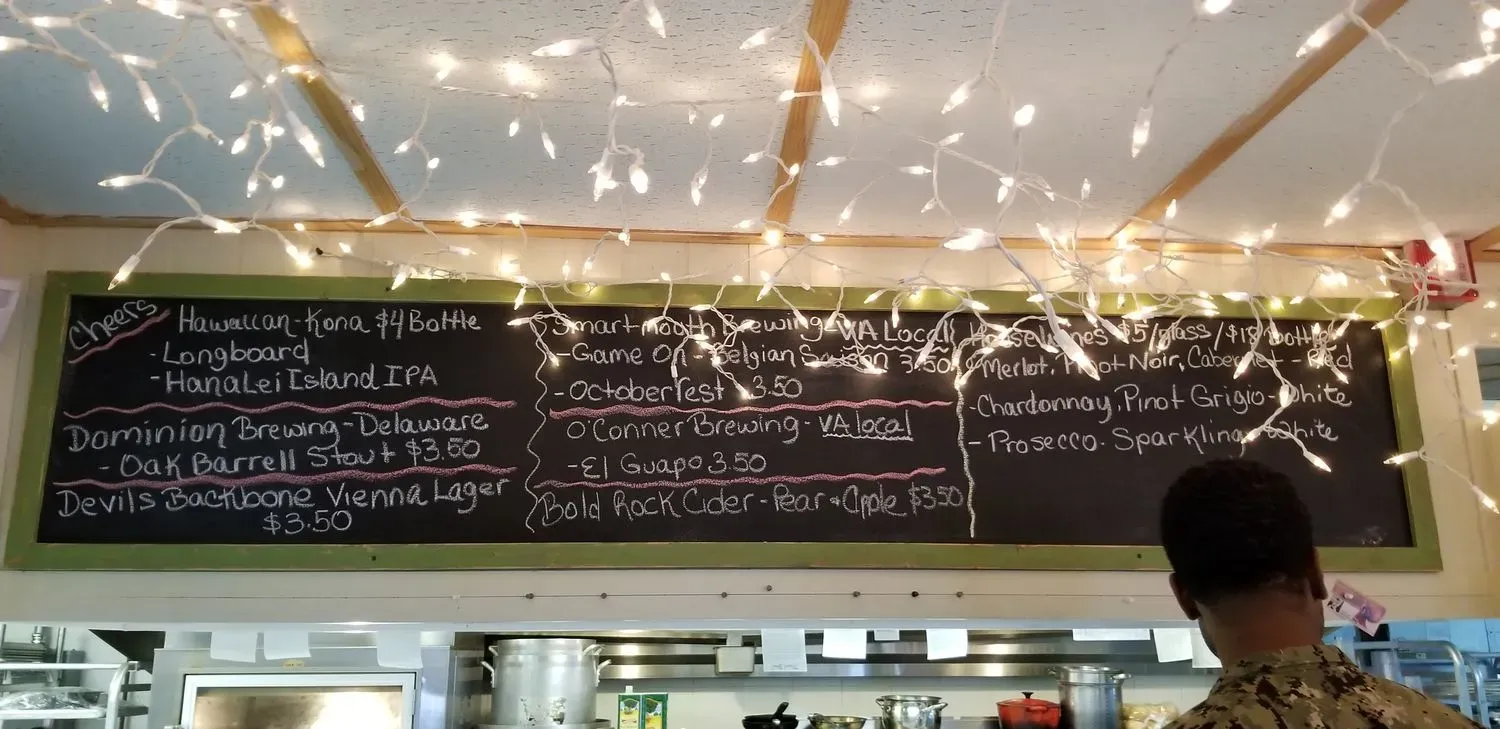 Cheers
Hawaiian-Kona $4 Bottle
- Longboard
- HanaLei Island IPA
Dominion Brewing - Delaware
- Oak Barrell Stout $3.50
Devils Backbone Vienna Lager
$3.50
Smartmouth Brewing - VA Local
- Game On - Belgian 3.50
- Octoberfest 3.50
O'Conner Brewing - VA local
- El Guapo 3.50
Bold Rock Cider - Pear & Apple $3.50
House Wines $5/glass / $18 bottle
- Merlot, Pinot Noir, Cabernet - Red
- Chardonnay, Pinot Grigio - White
- Prosecco - Sparkling White